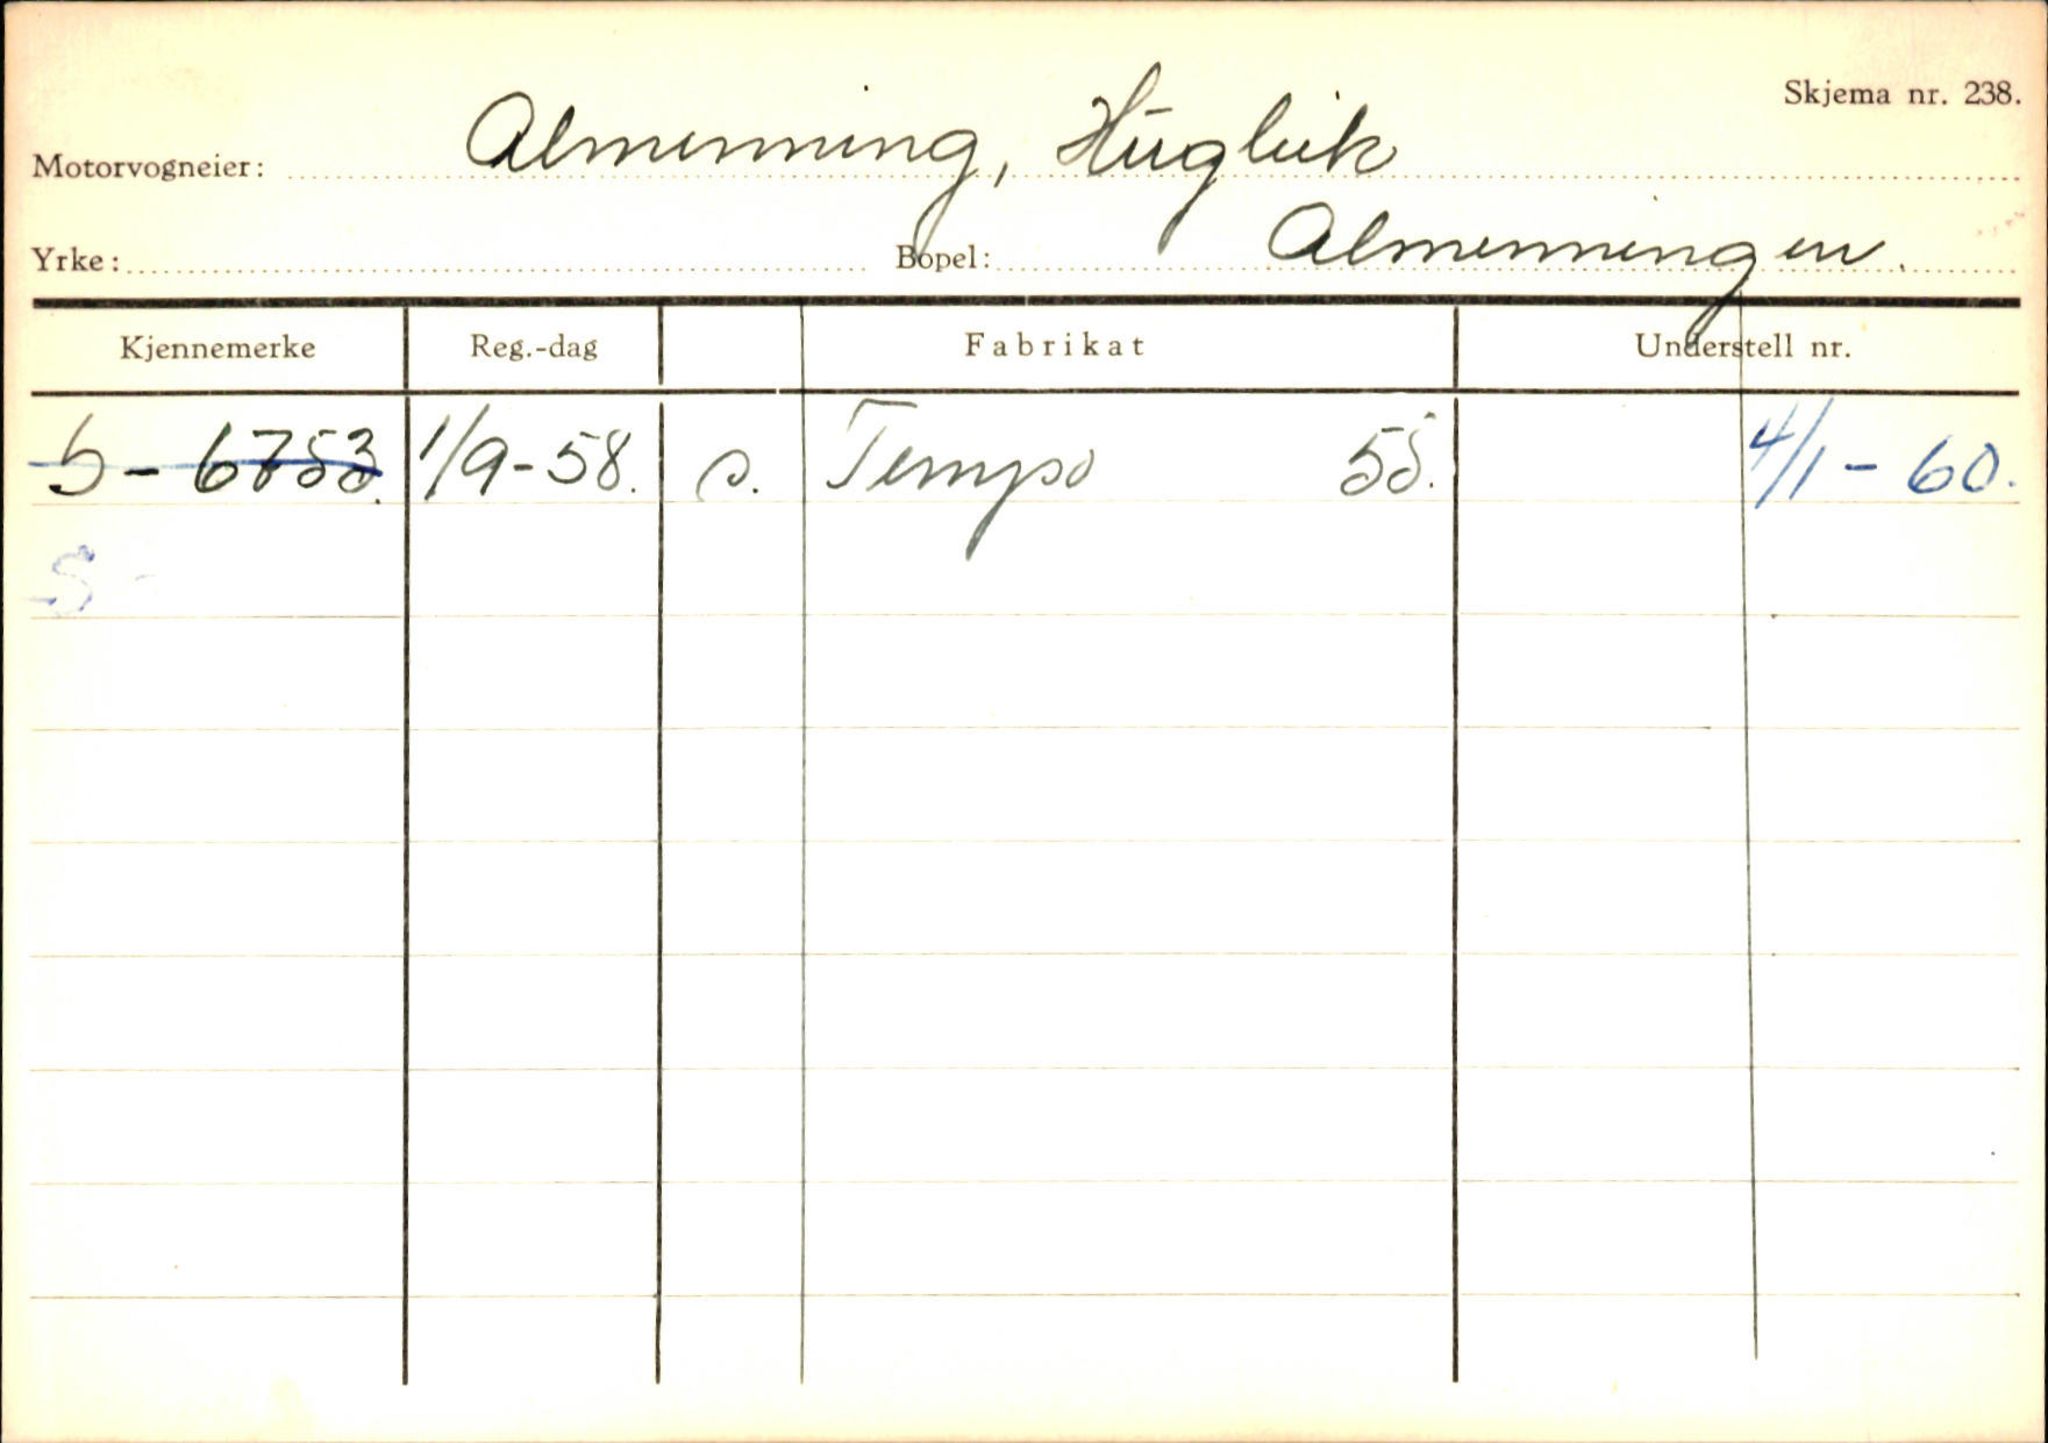 Skjema nr. 238.
Motorvogneier: Almenning, Hugleik
Yrke: Bopel: Almenningen.
Kjennemerke Reg.-dag Fabrikat Understell nr.
S - 6753. 1/9-58. s. Tempo 55. 4/1-60.
S -